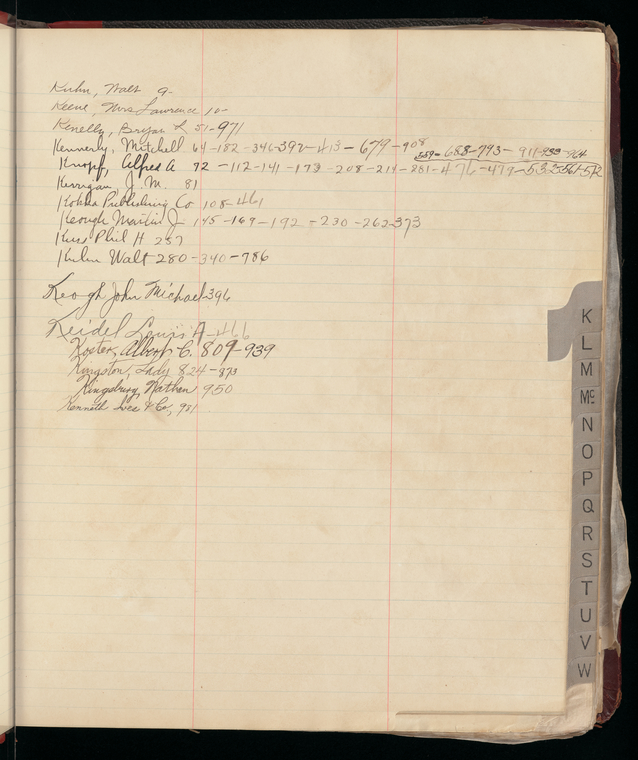 Kuhn, Walt 9-
Keene, Mrs Lawrence 10-
Kenelly, Bryan L 51-971
Kennerly, Mitchell 64-182-346-392-413-679-908
589-688-793-911-953-964
Knopf, Alfred A 92-112-141-173-208-214-281-476-479-513-556-572
Kerrigan J. M. 81
Publishing Co 108-461
Keough Martin J- 145-169-192-230-262-373
Phil H 257
Kuhn Walt 280-340-786
Keogh John Michael 396
Keidel Louis A-466
Koster, Albert C. 809-939
Kingston, Lady 824-873
Kingsbury, Nathan 950
Kenneth & Co, 981
K
L
M
Mc
N
O
P
Q
R
S
T
U
V
W